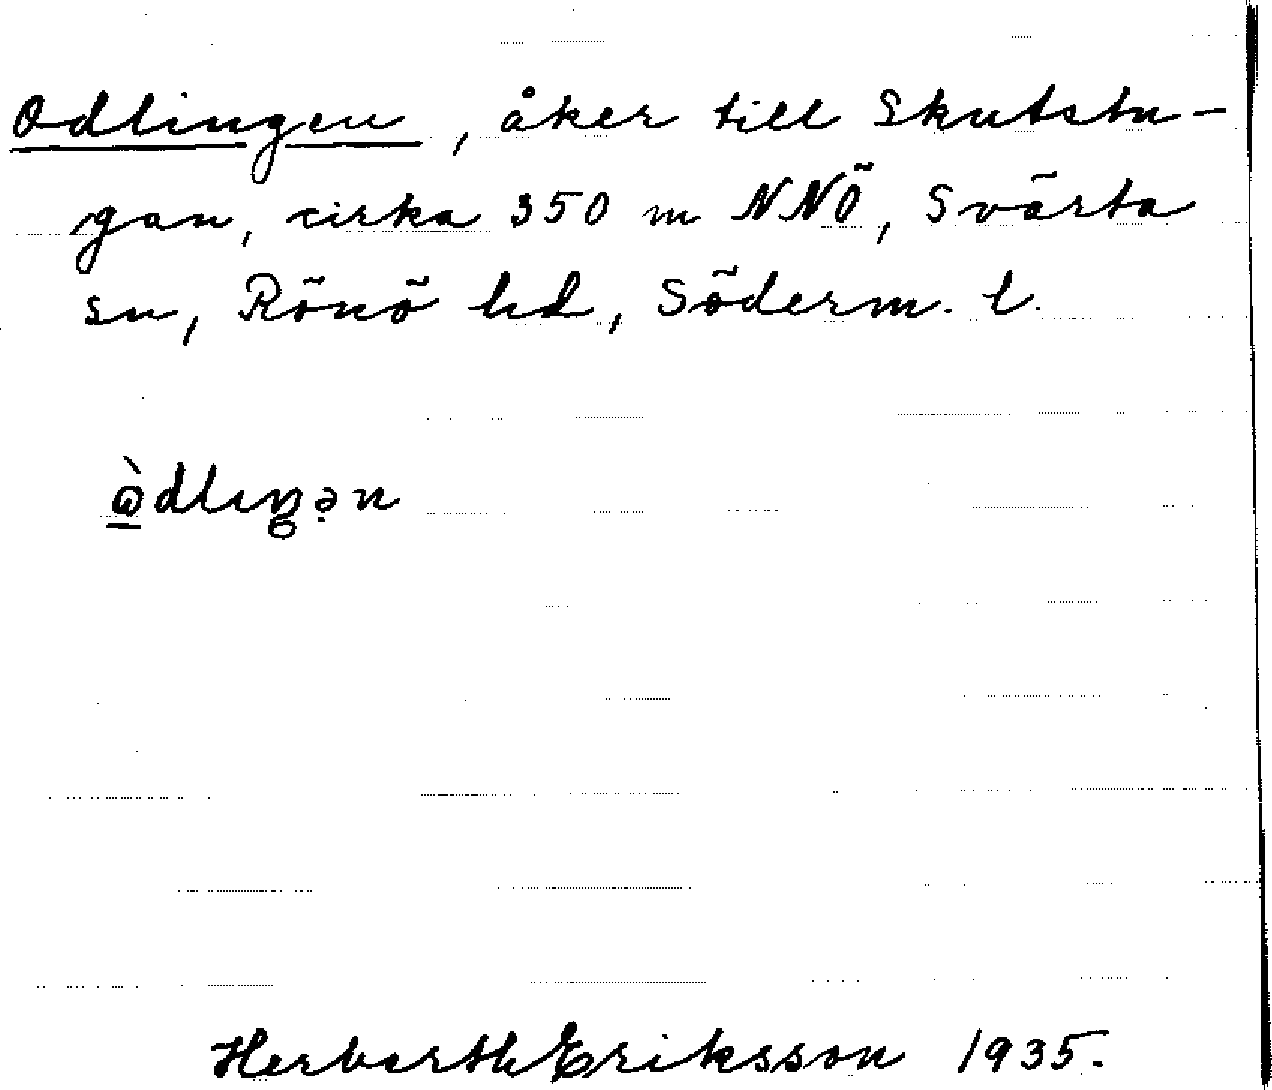 Odlingen, åker till Skutstu-
gan, cirka 350 m NNÖ, Svärta
sn, Rönö hd, Söderm. l.
ὼ̲dlıŋən
Herbert Eriksson 1935.